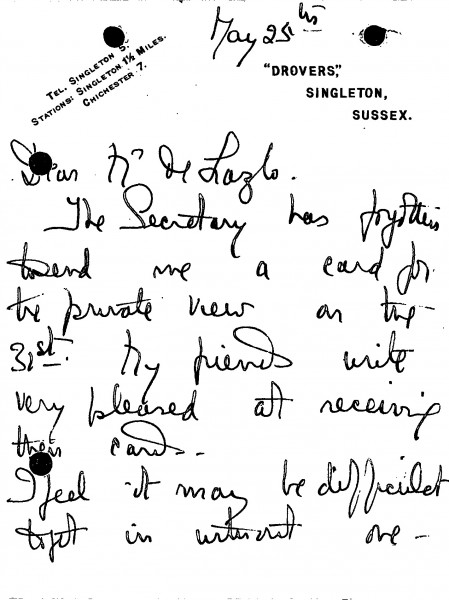 May 25th
TEL. SINGLETON 5.
STATIONS: SINGLETON 1½ MILES.
CHICHESTER 7.
"DROVERS,"
SINGLETON,
SUSSEX.
Dear Mr de Laszlo.
The Secretary has forgotten
to send me a card for
the private view on the
31st. My friends write
very pleased at receiving
their cards.
I feel it may be difficult
to get in without one -